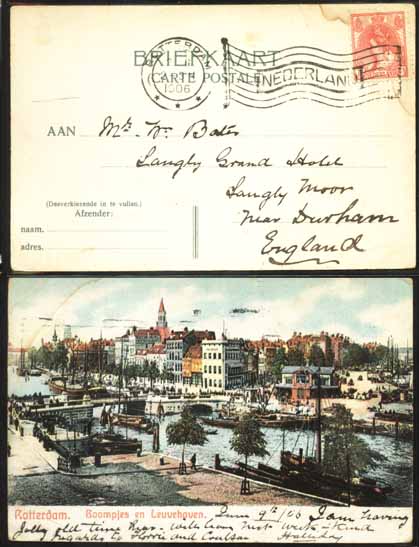 BRIEFKAART
(CARTE POSTALE)
ROTTERDAM
1906
NEDERLAND
AAN Mr. Wm. Bates
Langly Grand Hotel
Langly Moor
Near Durham
England
(Doeverkiezende in te vullen.)
Afzender:
naam.
adres.
Rotterdam. Boompjes en Leuvehaven. June 9th/06 I am having
Jolly old time here. Will leave next week. Kind
regards to Florrie and Coulson Halliday